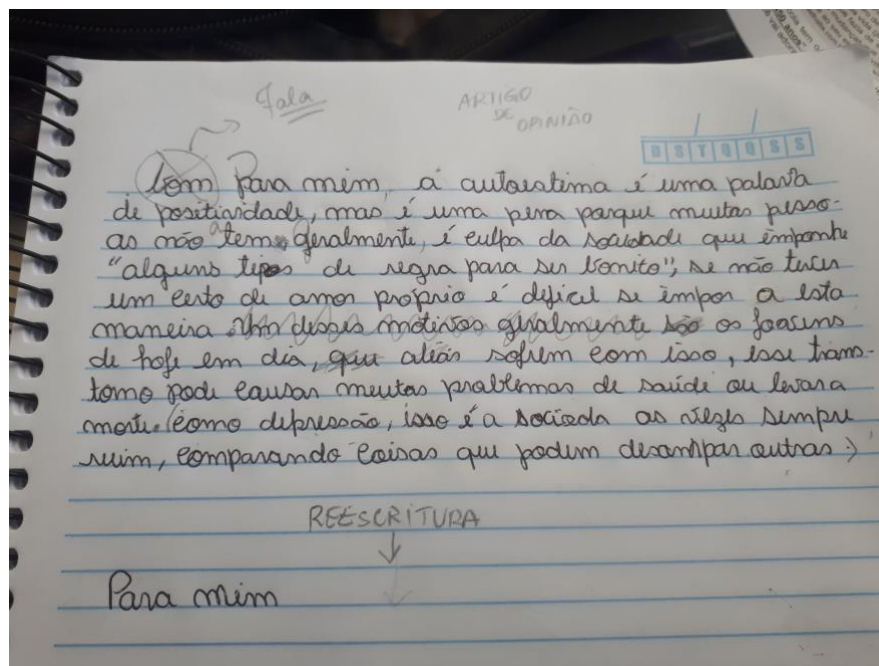 Fala
ARTIGO
DE
OPINIÃO
D S T Q Q S S
bom Para mim, a autoestima é uma palavra
de positividade, mas é uma pena porque muitas pesso-
as não a tem, geralmente, é culpa da sociedade que imponhe
"alguns tipos de regra para ser bonito", se não tiver
um certo de amor próprio é dificil se impor a esta
maneira. Um desses motivos geralmente são os joovens
de hoje em dia, que aliás sofrem com isso, esse trans-
torno pode causar muitos problemas de saúde ou levar a
morte. (como depressão, isso é a socieda as vezes sempre
ruim, comparando coisas que podem outras :)
REESCRITURA
Para mim